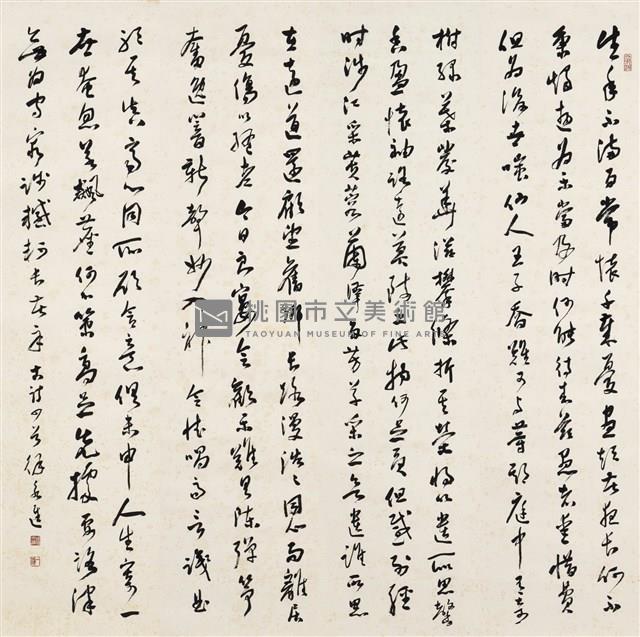 生年不滿百常懷千歲憂晝短苦夜長何不
秉燭遊為樂當及時何能待來茲愚者愛惜費
但為後世嗤仙人王子喬難可與等期庭中有奇
樹綠葉發華滋攀條折其榮將以遺所思馨
香盈懷袖路遠莫致之此物何足貢但感別經
時涉江采芙蓉蘭澤多芳草采之欲遺誰所思
在遠道還顧望舊鄉長路漫浩〻同心而離居
憂傷以終老今日良宴會歡樂難具陳彈箏
奮逸響新聲妙入神令德唱高言識曲
聽其真齊心同所願含意俱未申人生寄一
世奄忽若飆塵何不策高足先據要路津
無為守窮賤轗軻長苦辛 古詩四首 徐永進
桃園市立美術館
TAOYUAN MUSEUM OF FINE ARTS